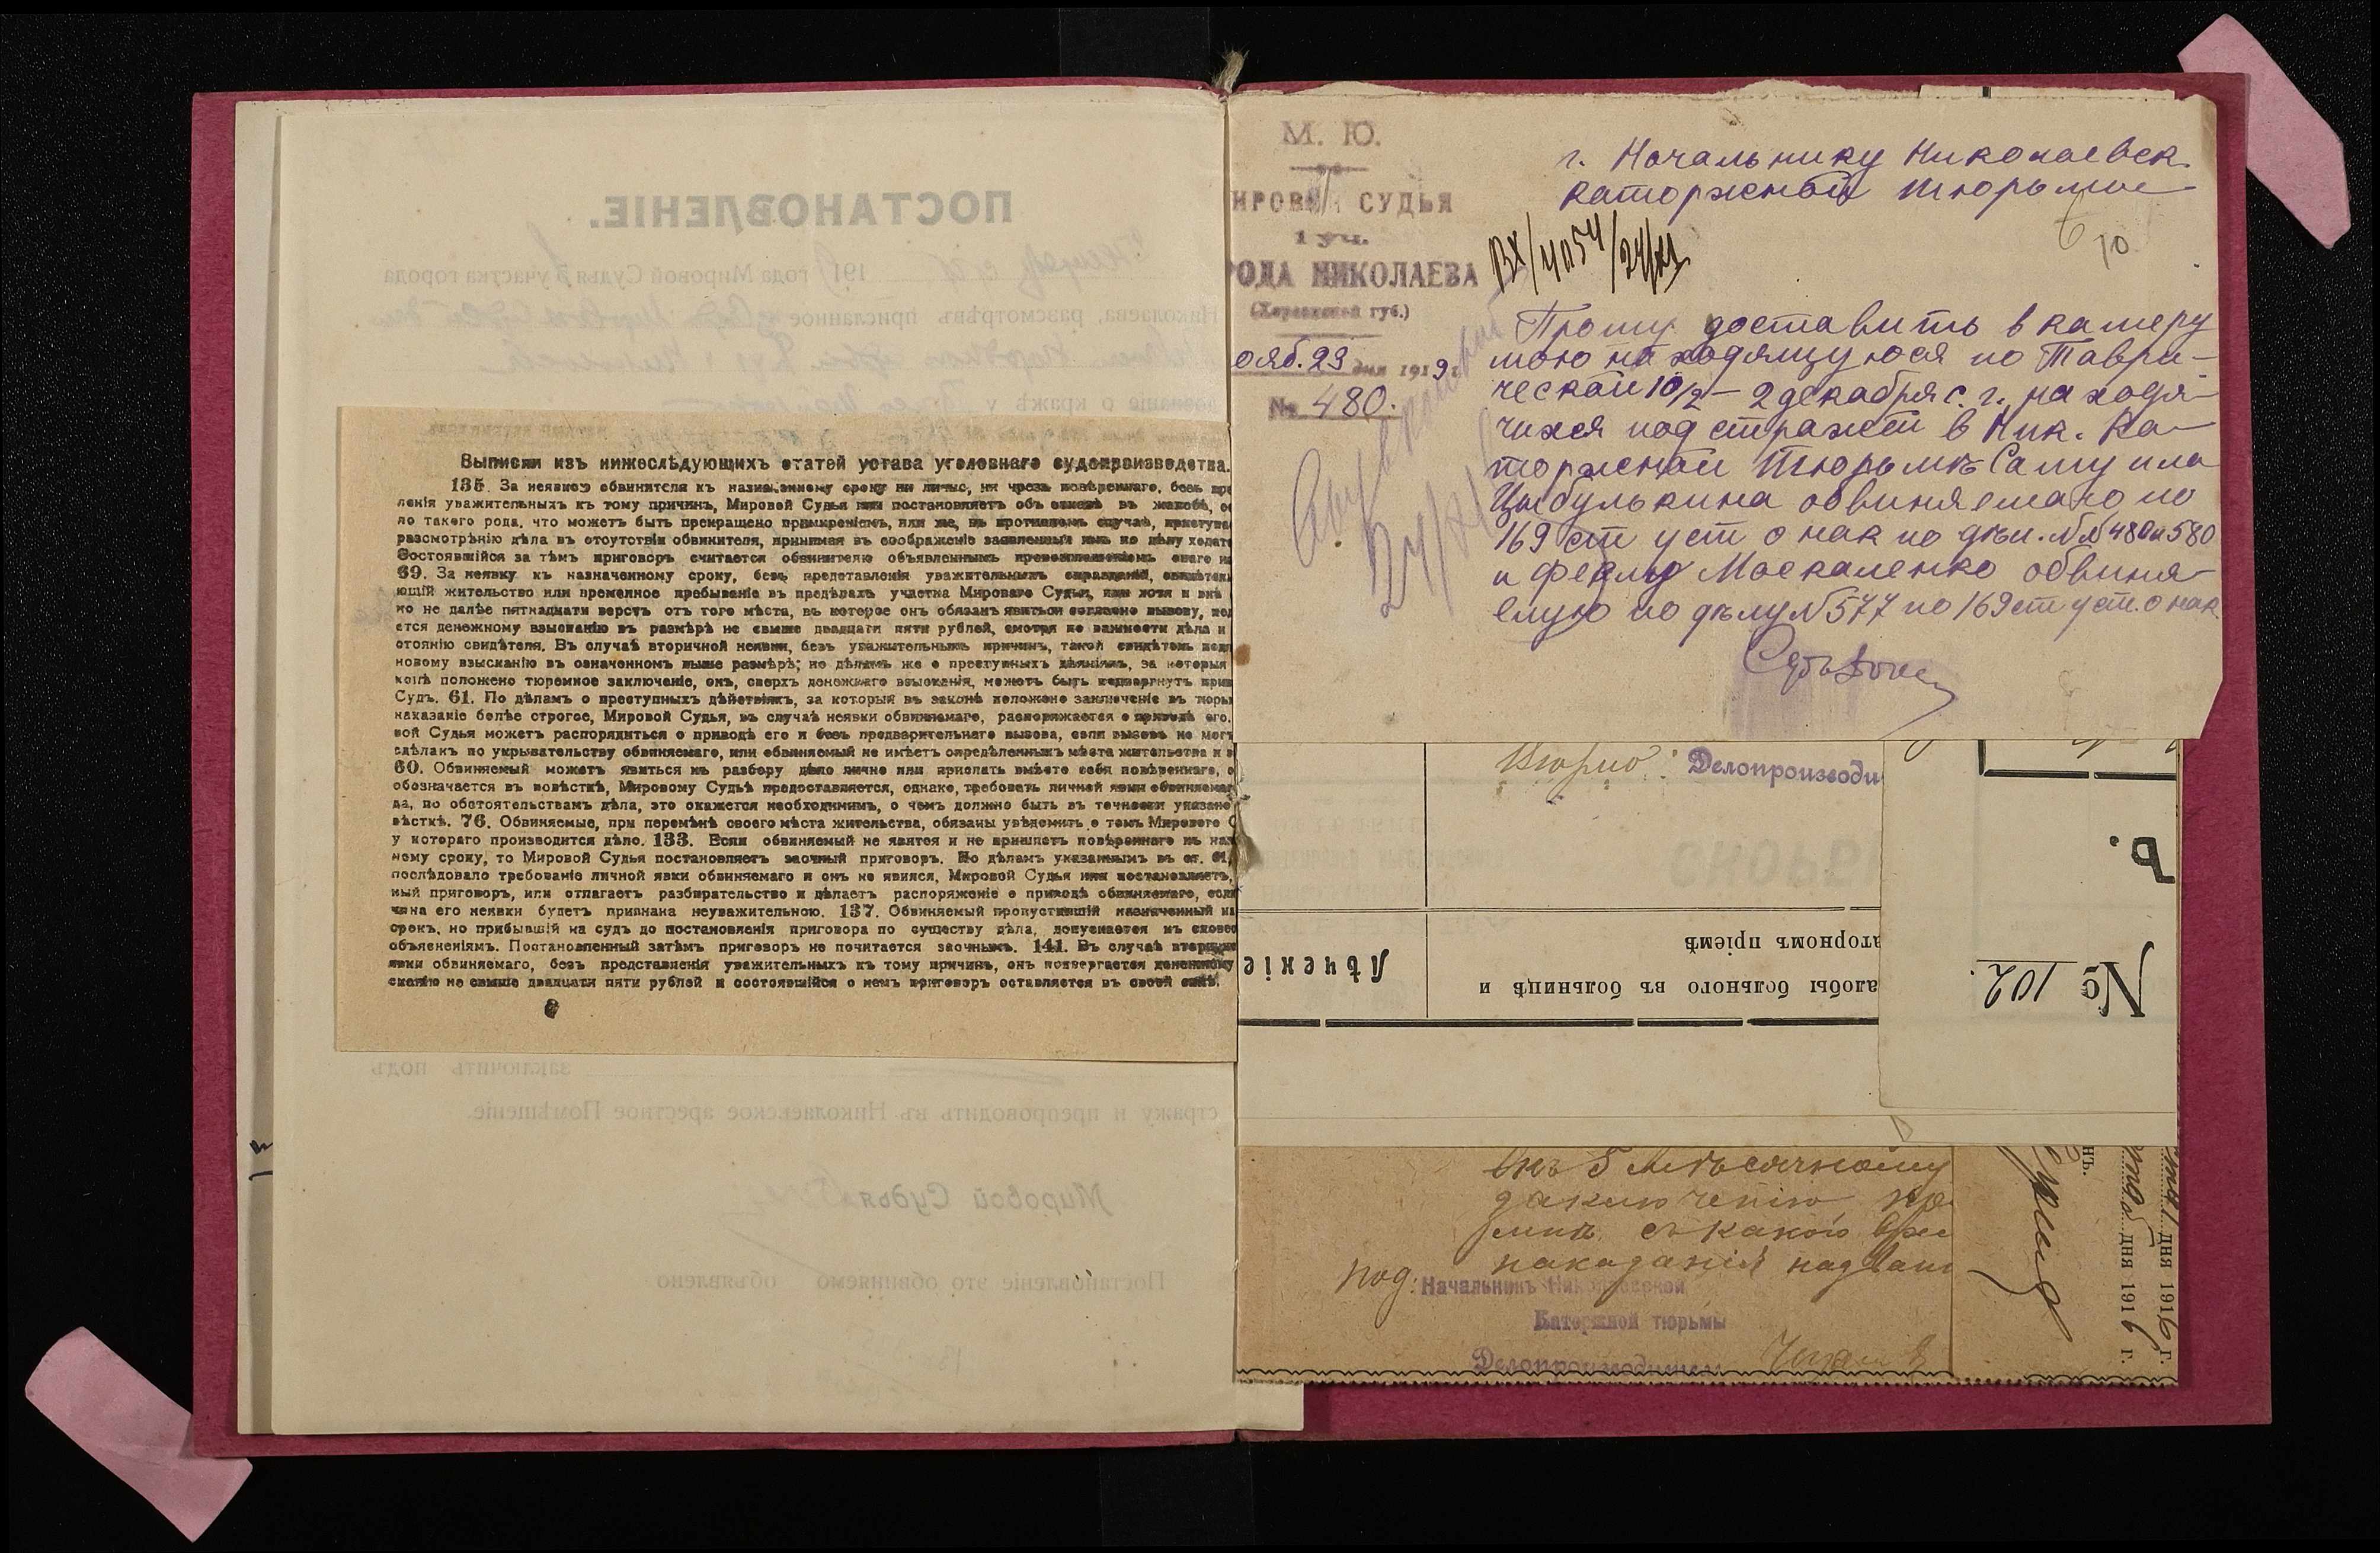 Выписки изъ нижеслѣдующихъ статей устава уголовнаго судопроизводства.
135. За неявкою обвинителя къ назначенному сроку ни лично, ни чрезъ повѣреннаго, безъ
ленія уважительныхъ къ тому причинъ, Мировой Судья или постановляетъ объ отказѣ въ жалобѣ,
ло такого рода, что можетъ быть прекращено примиреніемъ, или же, въ противномъ случаѣ, приступа
разсмотрѣнію дѣла въ отсутствіи обвинителя, принимая въ соображеніе заявленныя имъ по дѣлу ходат
Состоявшійся за тѣмъ приговоръ считается обвинителю объявленнымъ провозглашеніемъ онаго
69. За неявку къ назначенному сроку, безъ представленія уважительныхъ оправданій, свидѣтел
ющій жительство или временное пребываніе въ предѣлахъ участка Мироваго Судьи, или хотя и внѣ
но не далѣе пятнадцати верстъ отъ того мѣста, въ которое онъ обязанъ явиться согласно вызову,
ется денежному взысканію въ размѣрѣ не свыше двадцати пяти рублей, смотря по важности дѣла и
стоянію свидѣтеля. Въ случаѣ вторичной неявки, безъ уважительныхъ причинъ, такой свидѣтель
новому взысканію въ означенномъ выше размѣрѣ; по дѣламъ же о преступныхъ дѣяніяхъ, за которыя
конѣ положено тюремное заключеніе, онъ, сверхъ денежнаго взысканія, можетъ быть подвергнутъ
Судъ. 61. По дѣламъ о преступныхъ дѣйствіяхъ, за который въ законѣ положено заключеніе въ тюрь
наказаніе болѣе строгое, Мировой Судья, въ случаѣ неявки обвиняемаго, распоряжается о приводѣ его.
вой Судья можетъ распорядиться о приводѣ его и безъ предварительнаго вызова, если вызовъ не мог
сдѣланъ по укрывательству обвиняемаго, или обвиняемый не имѣетъ опредѣленныхъ мѣста жительства и
60. Обвиняемый можетъ явиться къ разбору дѣла лично или прислать вмѣсто себя повѣреннаго,
обозначается въ повѣсткѣ, Мировому Судьѣ предоставляется, однако, требовать личной явки обвиняемаг
да, по обстоятельствамъ дѣла, это окажется необходимымъ, о чемъ должно быть въ точности указано
вѣсткѣ. 76. Обвиняемые, при перемѣнѣ своего мѣста жительства, обязаны увѣдомить о томъ Мирового
у котораго производится дѣло. 133. Если обвиняемый не явится и не пришлетъ повѣреннаго къ наз
ному сроку, то Мировой Судья постановляетъ заочный приговоръ. По дѣламъ указаннымъ въ ст. 61,
послѣдовало требованіе личной явки обвиняемаго и онъ не явился, Мировой Судья или постановляетъ,
ный приговоръ, или отлагаетъ разбирательство и дѣлаетъ распоряженіе о приводѣ обвиняемаго, если
чина его неявки будетъ признана неуважительною. 137. Обвиняемый пропустившій назначенный
срокъ, но прибывшій на судъ до постановленія приговора по существу дѣла, допускается къ словес
объясненіямъ. Постановленный затѣмъ приговоръ не почитается заочнымъ. 141. Въ случаѣ вторичн
явки обвиняемаго, безъ представленія уважительныхъ къ тому причинъ, онъ подвергается денежному
сканію не свыше двадцати пяти рублей и состоявшійся о немъ приговоръ оставляется въ своей силѣ.
ПОСТАНОВЛЕНІЕ.
191 года Мировой Судья участка города
Николаева, разсмотрѣвъ присланное
дознаніе о кражѣ у
заключить подъ
стражу и препроводить въ Николаевское арестное Помѣщеніе.
Мировой Судья
Постановленіе это обвиняемо объявлено
М. Ю.
ИРОВОЙ СУДЬЯ
1 уч.
РОДА НИКОЛАЕВА
(Херсонской губ.)
ояб. 23 дня 1919 г.
№ 480.
г. Начальнику Николаевск.
каторжной тюрьмы
ВХ/4054/24/XI
10
Прошу доставить в камеру
мою находящуюся по Таври-
ческой 10/2 – 2 декабря с. г. находя-
чихся под стражей в Ник. Ка-
торжной Тюрьмѣ Самуила
Цыбулькина обвиняемаго по
169 ст уст о нак по дѣл. №№ 480 и 580
и Феклу Москаленко обвиня-
емую по дѣлу № 577 по 169 ст уст. о нак
24/XI
Вѣрно: Делопроизводи
Ъ.
№ 102.
аторномъ пріемѣ
алобы больного въ больницѣ и
Лѣченіе
5 мѣсячному
заключенію
с какого вре
наказанія над
под: Начальникъ Николаевской
Каторжной тюрьмы
Делопроизводитель
дня 1916 г.
дня 1916 г.